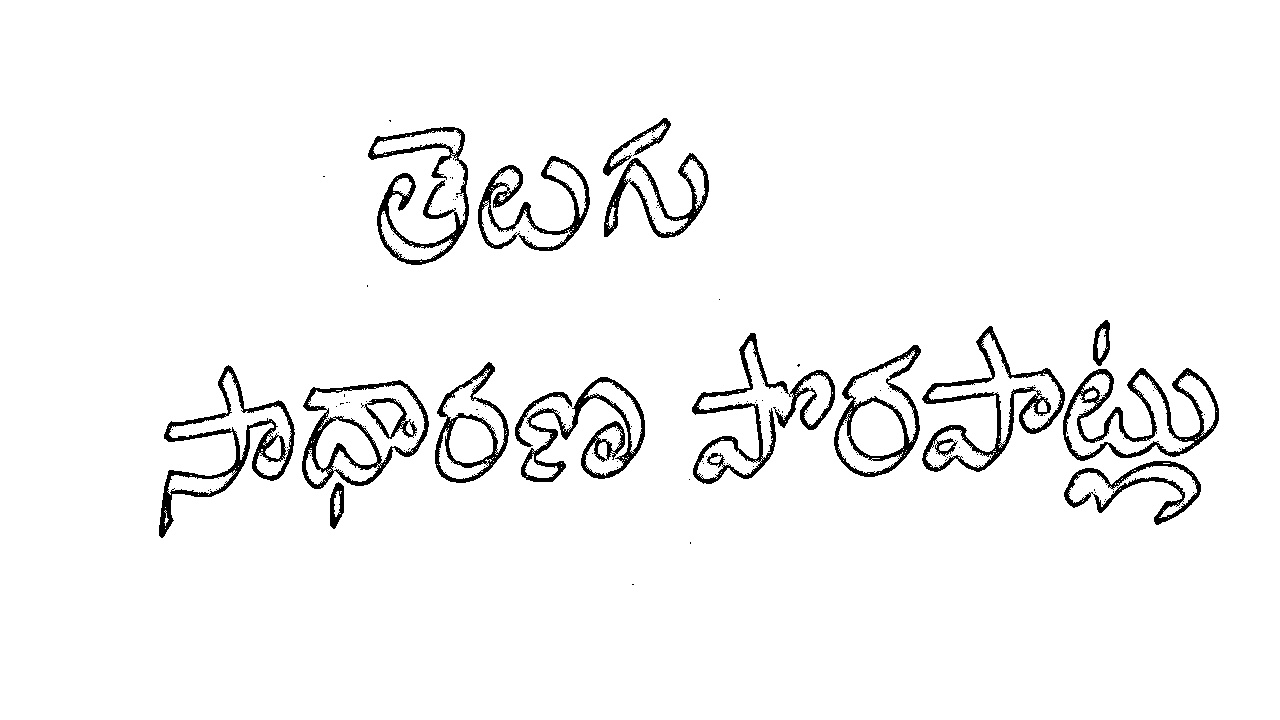 తెలుగు
సాధారణ పొరపాట్లు